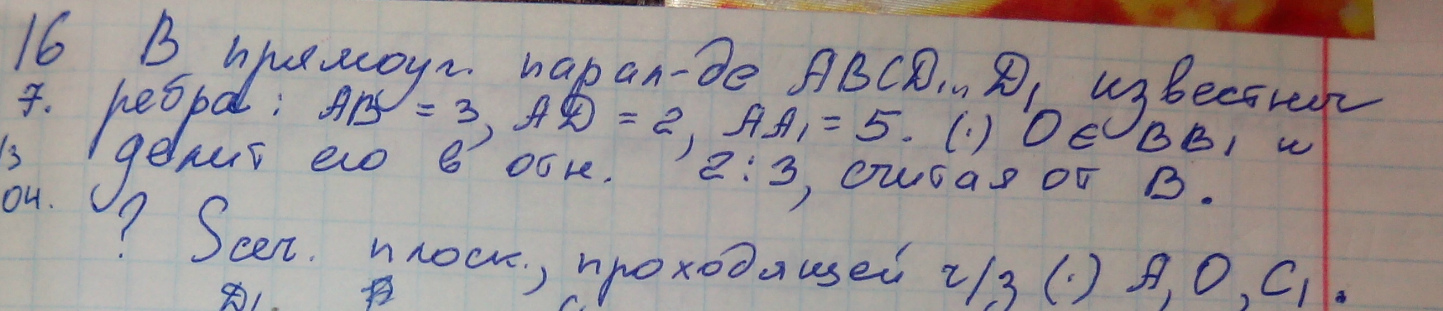 16 В прямоуг. парал-де ABCD...D₁ известны
7. ребра: AB = 3, AD = 2, AA₁ = 5. (·) O ∈ BB₁ и
13 делит его в отн. 2:3, считая от B.
04. ? Sсеч. плоск., проходящей ч/з (·) A, O, C₁.
D₁